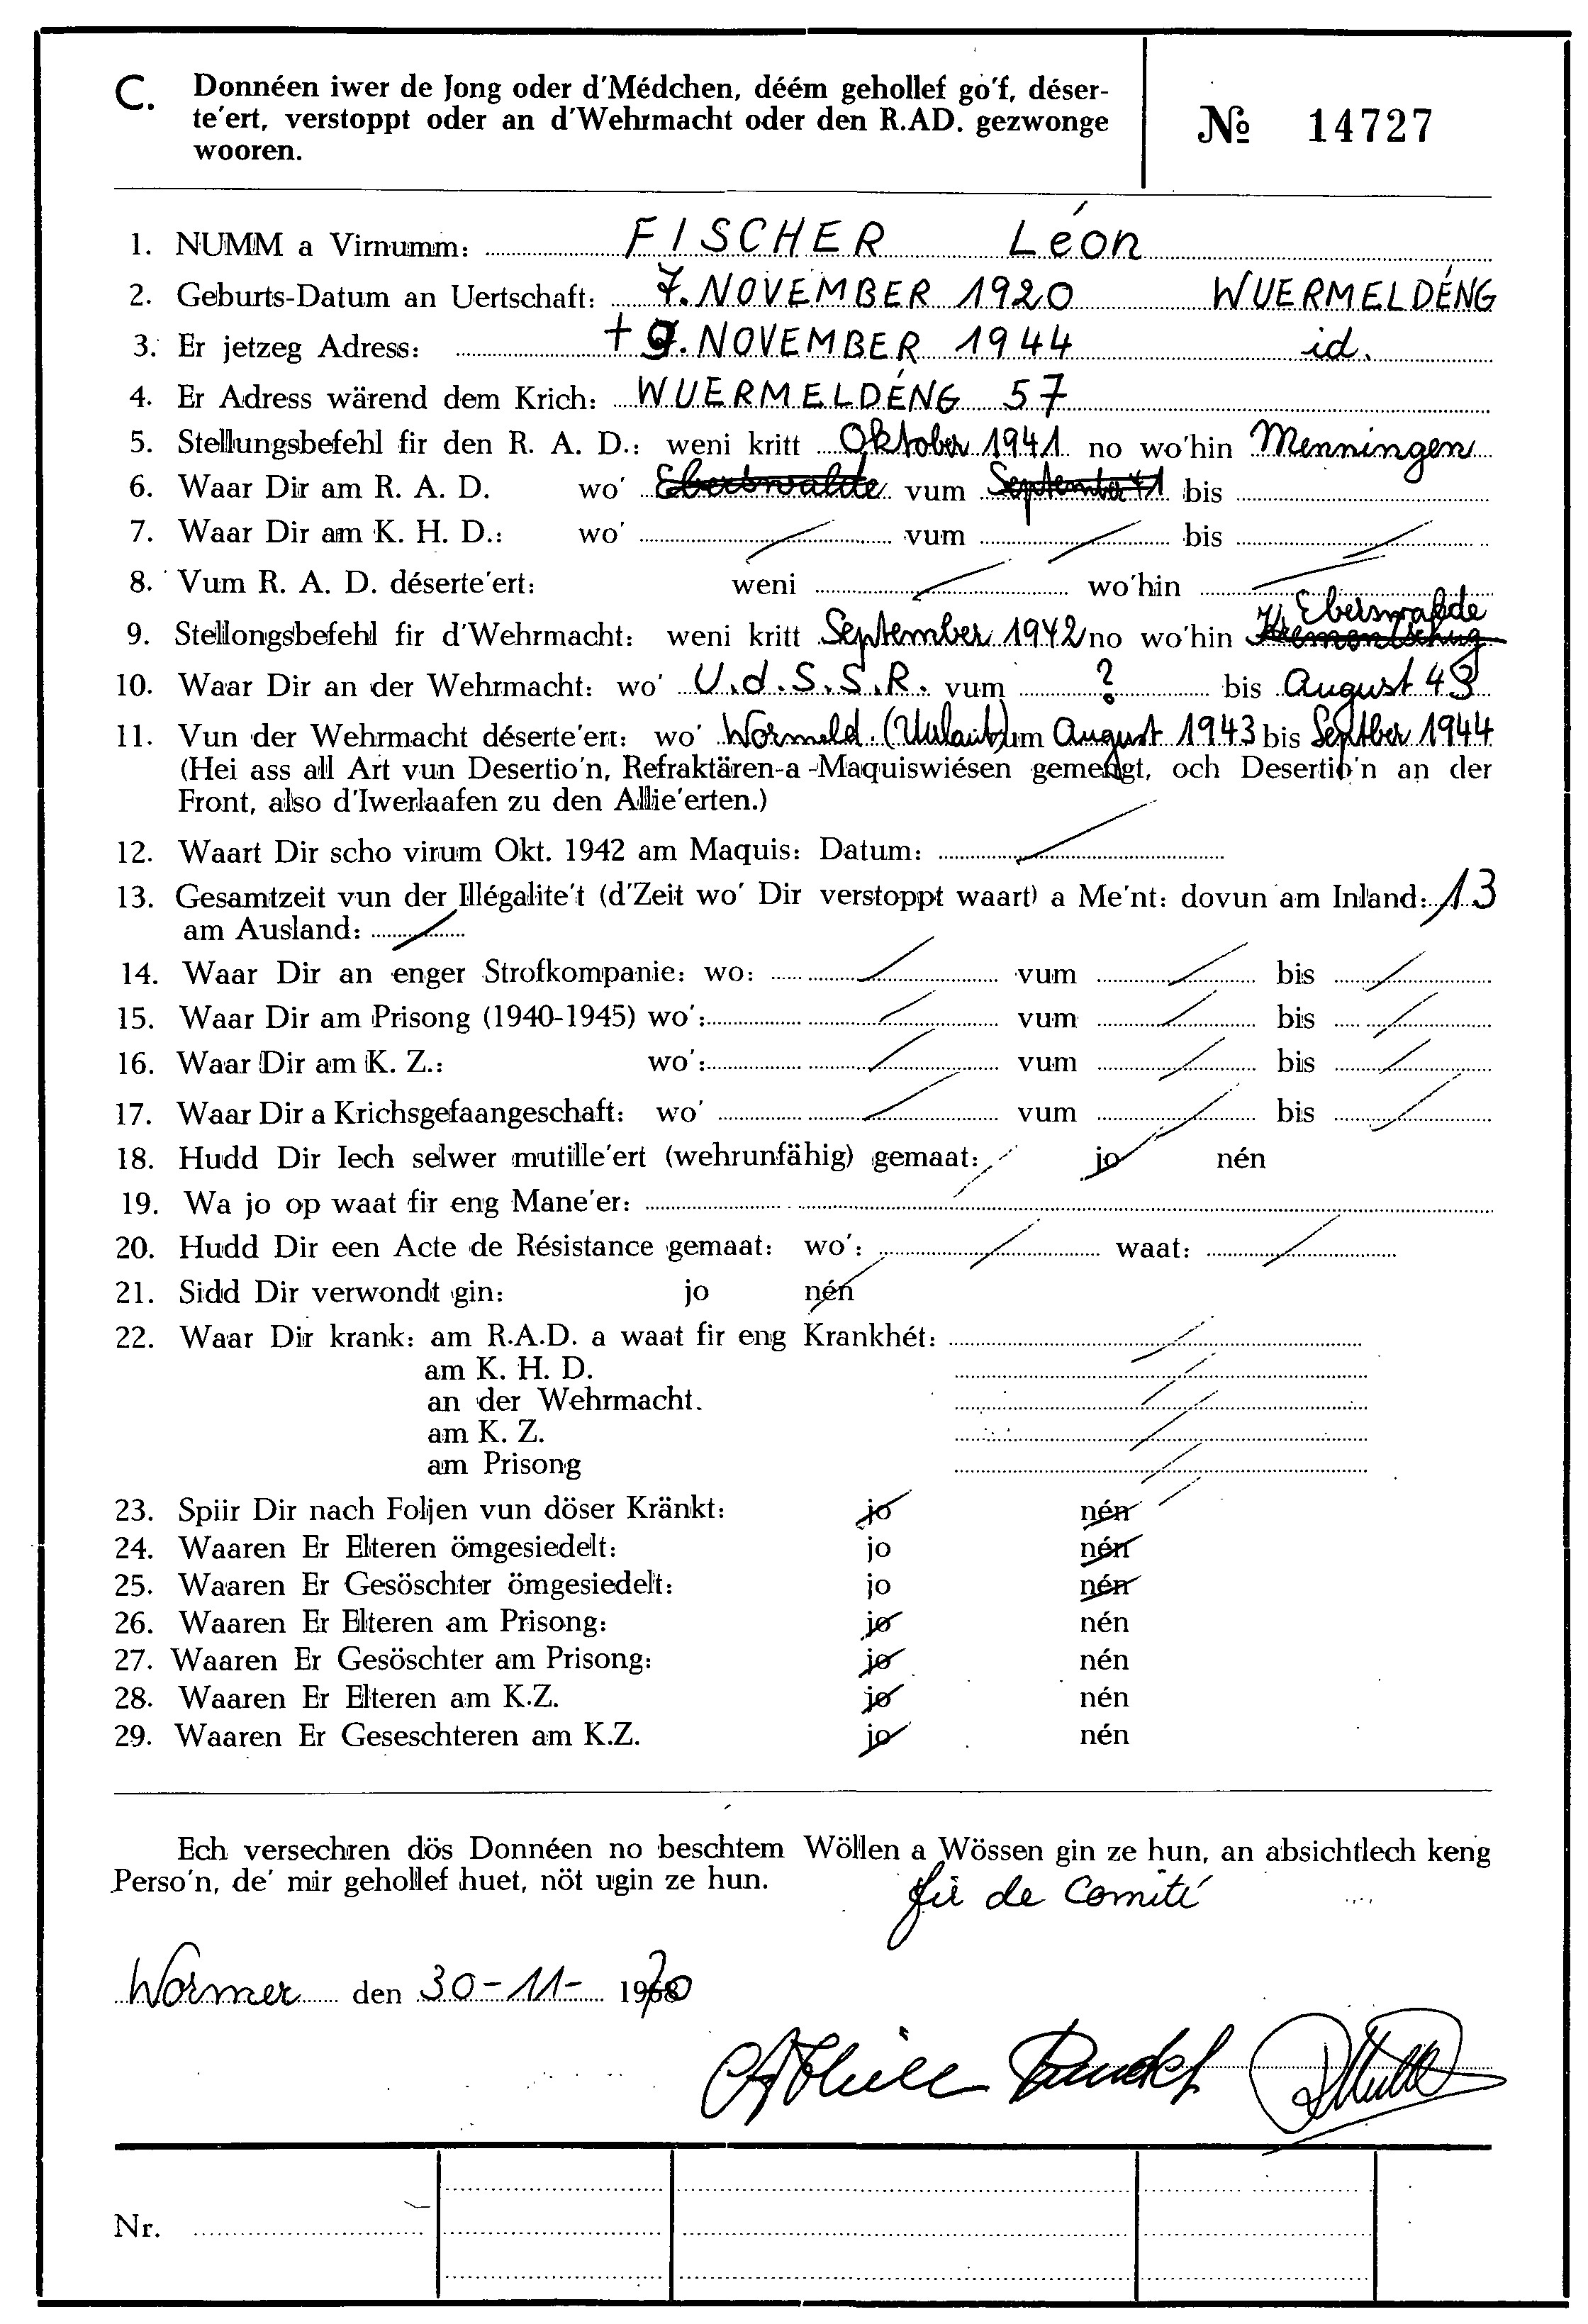 C. Donnéen iwer de Jong oder d'Médchen, déém gehollef go'f, déser-
te'ert, verstoppt oder an d'Wehrmacht oder den R.AD. gezwonge
wooren.
№ 14727
1. NUMM a Virnumm: FISCHER Léon
2. Geburts-Datum an Uertschaft: 7. NOVEMBER 1920 WUERMELDÉNG
3. Er jetzeg Adress: + 9. NOVEMBER 1944 id.
4. Er Adress wärend dem Krich: WUERMELDÉNG 57
5. Stellungsbefehl fir den R. A. D.: weni kritt Oktober 1941 no wo'hin Menningen
6. Waar Dir am R. A. D. wo' Eberswalde vum September 41 bis
7. Waar Dir am K. H. D.: wo' vum bis
8. Vum R. A. D. déserte'ert: weni wo'hin
Eberswalde
9. Stellongsbefehl fir d'Wehrmacht: weni kritt September 1942 no wo'hin Krementschug
10. Waar Dir an der Wehrmacht: wo' U.d.S.S.R. vum ? bis August 43
11. Vun der Wehrmacht déserte'ert: wo' Wormeld. (Urlaub) vum August 1943 bis Septber 1944
(Hei ass all Art vun Desertio'n, Refraktären-a-Maquiswiésen gemengt, och Desertio'n an der
Front, also d'Iwerlaafen zu den Allie'erten.)
12. Waart Dir scho virum Okt. 1942 am Maquis: Datum:
13. Gesamtzeit vun der Illégalite't (d'Zeit wo' Dir verstoppt waart) a Me'nt: dovun am Inland: 13
am Ausland:
14. Waar Dir an enger Strofkompanie: wo: vum bis
15. Waar Dir am Prisong (1940-1945) wo': vum bis
16. Waar Dir am K. Z.: wo': vum bis
17. Waar Dir a Krichsgefaangeschaft: wo' vum bis
18. Hudd Dir Iech selwer mutille'ert (wehrunfähig) gemaat: jo nén
19. Wa jo op waat fir eng Mane'er:
20. Hudd Dir een Acte de Résistance gemaat: wo': waat:
21. Sidd Dir verwondt gin: jo nén
22. Waar Dir krank: am R.A.D. a waat fir eng Krankhét:
am K. H. D.
an der Wehrmacht.
am K. Z.
am Prisong
23. Spiir Dir nach Foljen vun döser Kränkt: jo nén
24. Waaren Er Elteren ömgesiedelt: jo nén
25. Waaren Er Gesöschter ömgesiedelt: jo nén
26. Waaren Er Elteren am Prisong: jo nén
27. Waaren Er Gesöschter am Prisong: jo nén
28. Waaren Er Elteren am K.Z. jo nén
29. Waaren Er Geseschteren am K.Z. jo nén
Ech versechren dös Donnéen no beschtem Wöllen a Wössen gin ze hun, an absichtlech keng
Perso'n, de' mir gehollef huet, nöt ugin ze hun.
fir de Comité
Wormer den 30-11- 1970
Nr.